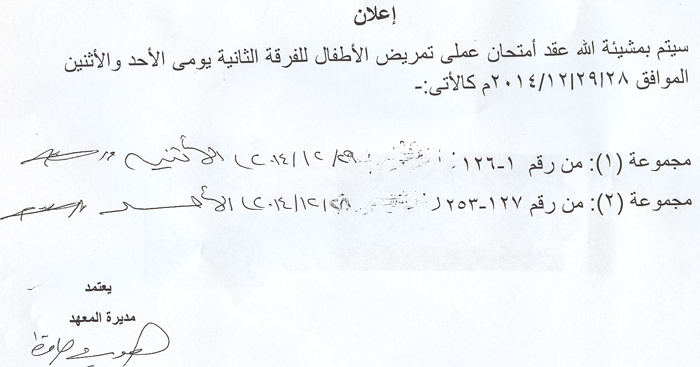 إعلان
سيتم بمشيئة الله عقد أمتحان عملى تمريض الأطفال للفرقة الثانية يومى الأحد والأثنين
الموافق ٢٠١٤/١٢/٢٩/٢٨م كالأتى:-
مجموعة (١): من رقم ١-١٢٦ ٢٠١٤/١٢/٢٩ الأثنين
مجموعة (٢): من رقم ١٢٧-٢٥٣ ٢٠١٤/١٢/٢٨ الأحد
يعتمد
مديرة المعهد